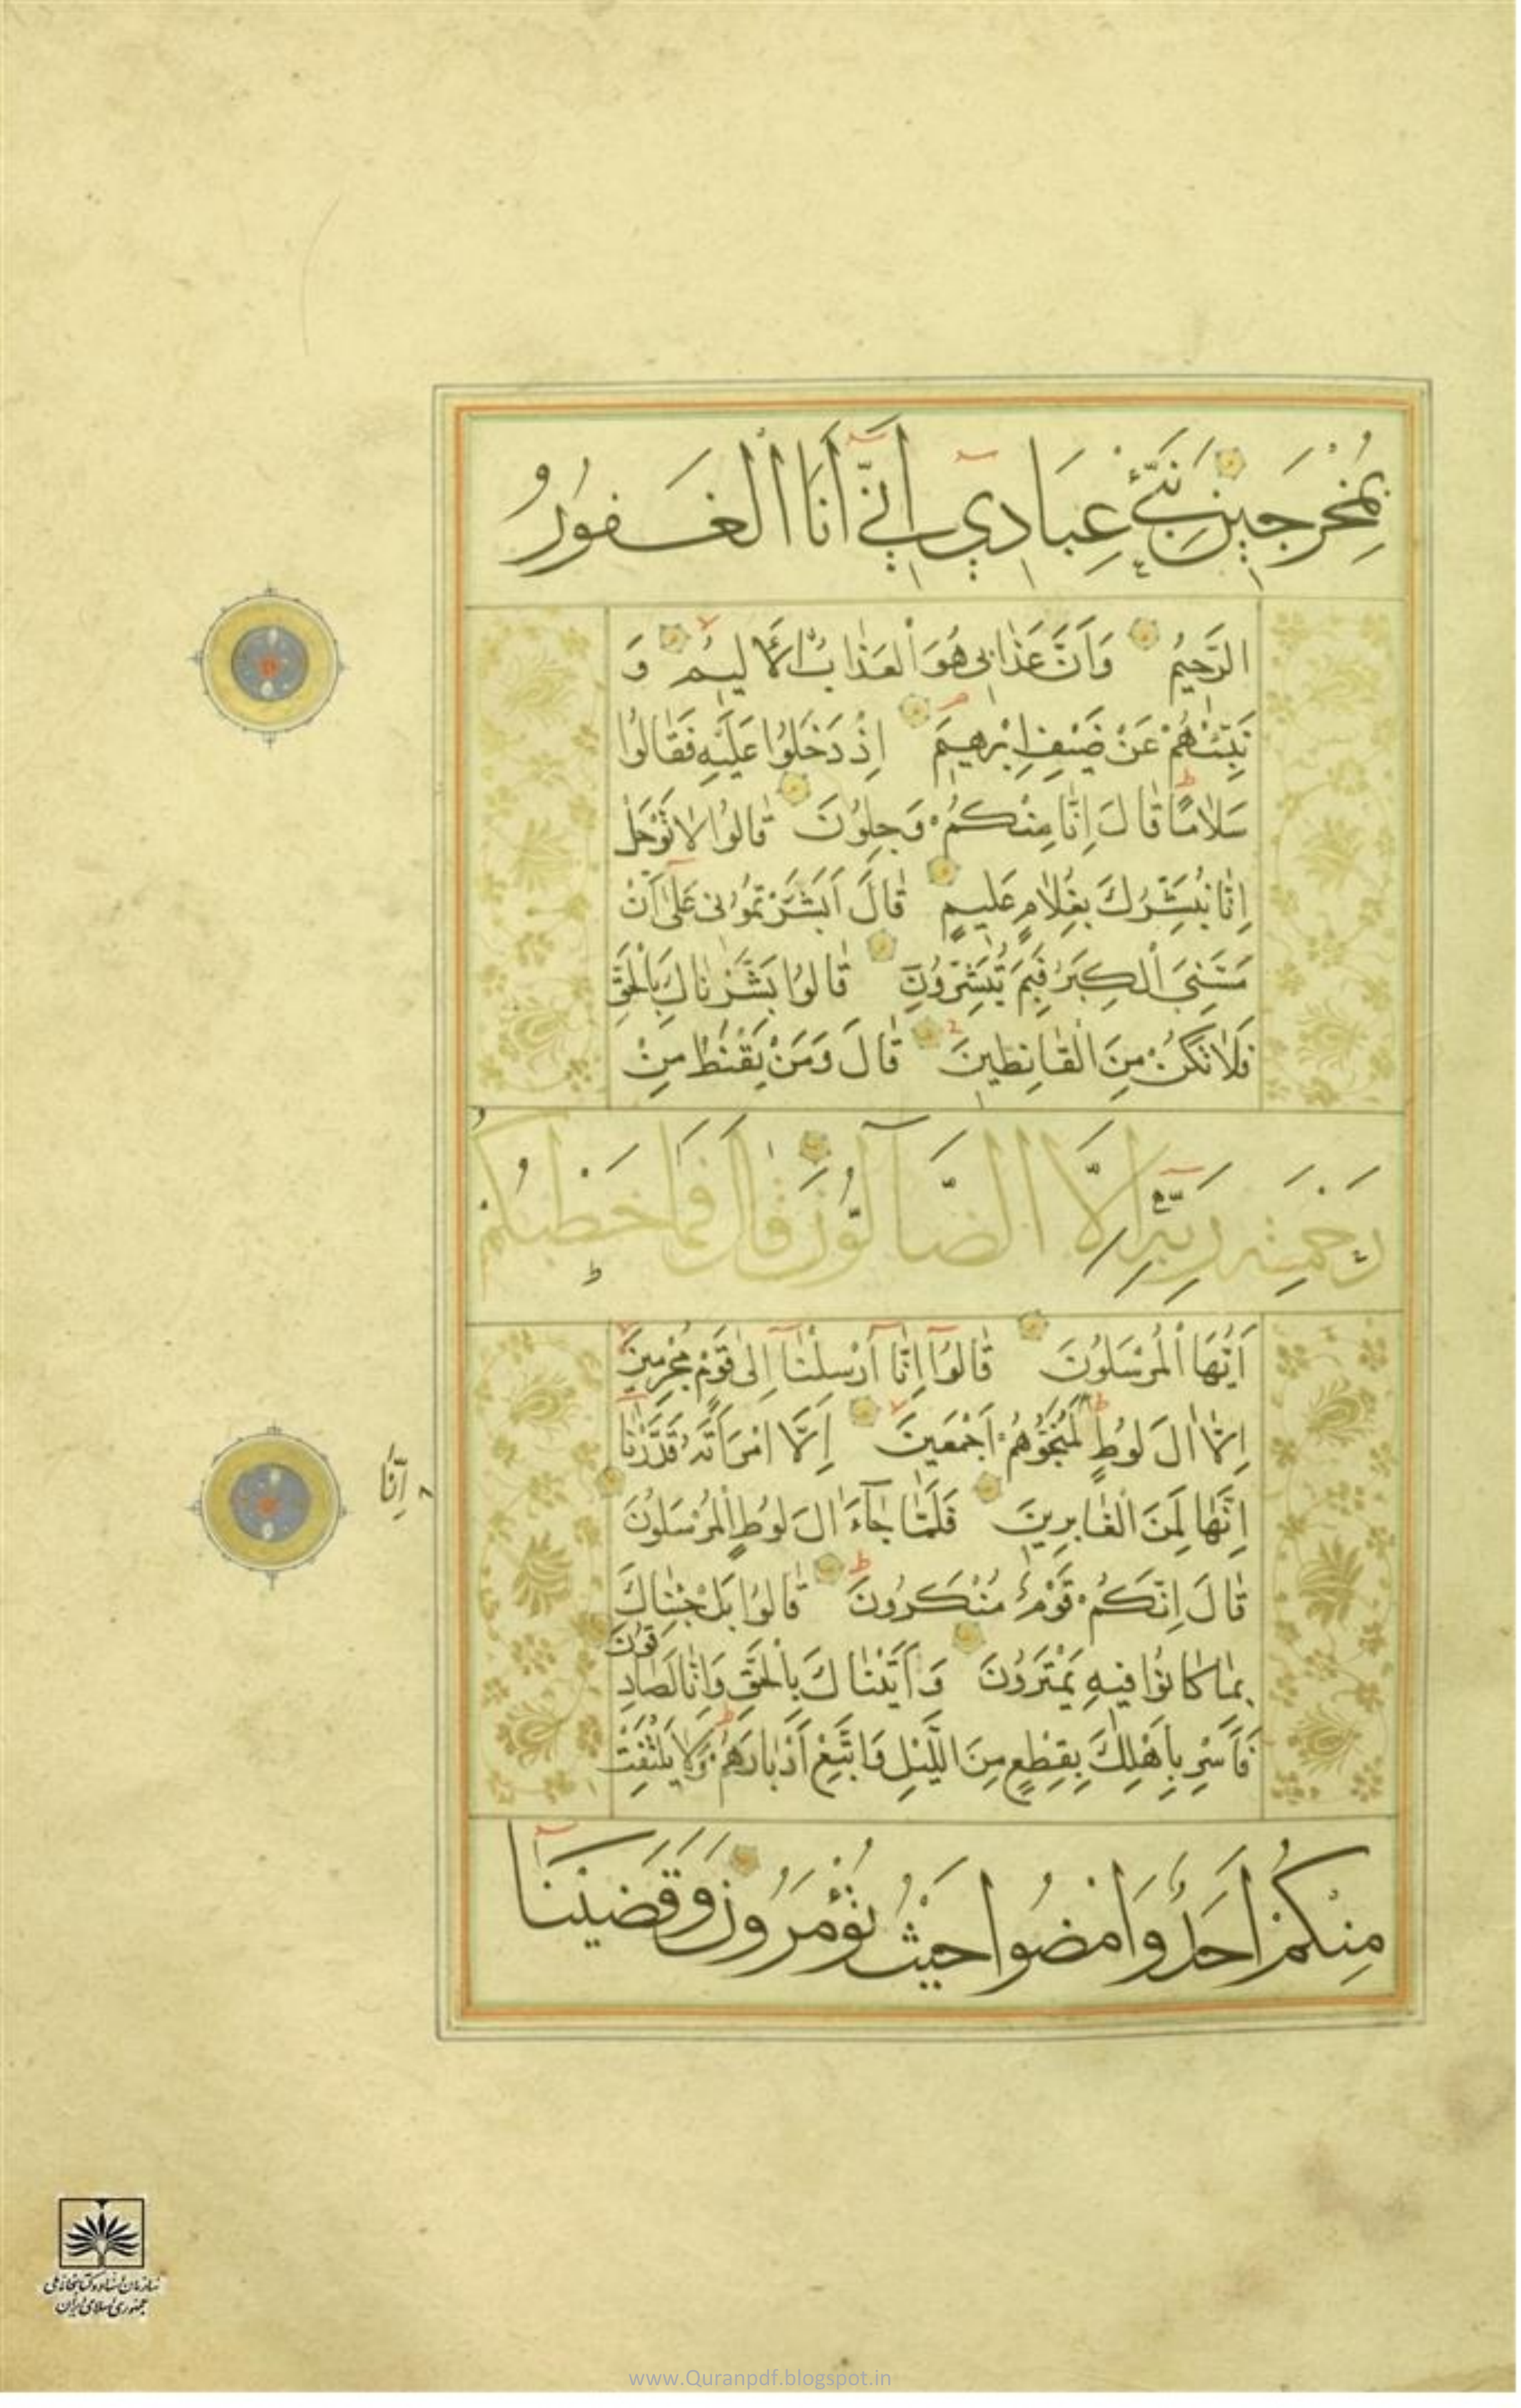 بِمُخْرَجِينَ نَبِّئْ عِبَادِي أَنِّي أَنَا الْغَفُورُ
الرَّحِيمُ وَأَنَّ عَذَابِي هُوَ الْعَذَابُ الْأَلِيمُ وَ
نَبِّئْهُمْ عَنْ ضَيْفِ إِبْرٰهِيمَ إِذْ دَخَلُوا عَلَيْهِ فَقَالُوا
سَلَامًا قَالَ إِنَّا مِنْكُمْ وَجِلُونَ قَالُوا لَا تَوْجَلْ
إِنَّا نُبَشِّرُكَ بِغُلَامٍ عَلِيمٍ قَالَ أَبَشَّرْتُمُونِي عَلَى أَنْ
مَسَّنِيَ الْكِبَرُ فَبِمَ تُبَشِّرُونَ قَالُوا بَشَّرْنَاكَ بِالْحَقِّ
فَلَا تَكُنْ مِنَ الْقَانِطِينَ قَالَ وَمَنْ يَقْنَطُ مِنْ
رَحْمَةِ رَبِّهِ إِلَّا الضَّالُّونَ قَالَ فَمَا خَطْبُكُمْ
أَيُّهَا الْمُرْسَلُونَ قَالُوا إِنَّا أُرْسِلْنَا إِلَى قَوْمٍ مُجْرِمِينَ
إِلَّا اٰلَ لُوطٍ لَمُنَجُّوهُمْ أَجْمَعِينَ إِلَّا امْرَأَتَهُ قَدَّرْنَا
إِنَّا
إِنَّهَا لَمِنَ الْغَابِرِينَ فَلَمَّا جَاءَ اٰلَ لُوطٍ الْمُرْسَلُونَ
قَالَ إِنَّكُمْ قَوْمٌ مُنْكَرُونَ قَالُوا بَلْ جِئْنَاكَ
بِمَا كَانُوا فِيهِ يَمْتَرُونَ وَأَتَيْنَاكَ بِالْحَقِّ وَإِنَّا لَصَادِقُونَ
فَأَسْرِ بِأَهْلِكَ بِقِطْعٍ مِنَ اللَّيْلِ وَاتَّبِعْ أَدْبَارَهُمْ وَلَا يَلْتَفِتْ
مِنْكُمْ أَحَدٌ وَامْضُوا حَيْثُ تُؤْمَرُونَ وَقَضَيْنَا
سازمان اسناد و کتابخانه ملی
جمهوری اسلامی ایران
www.Quranpdf.blogspot.in